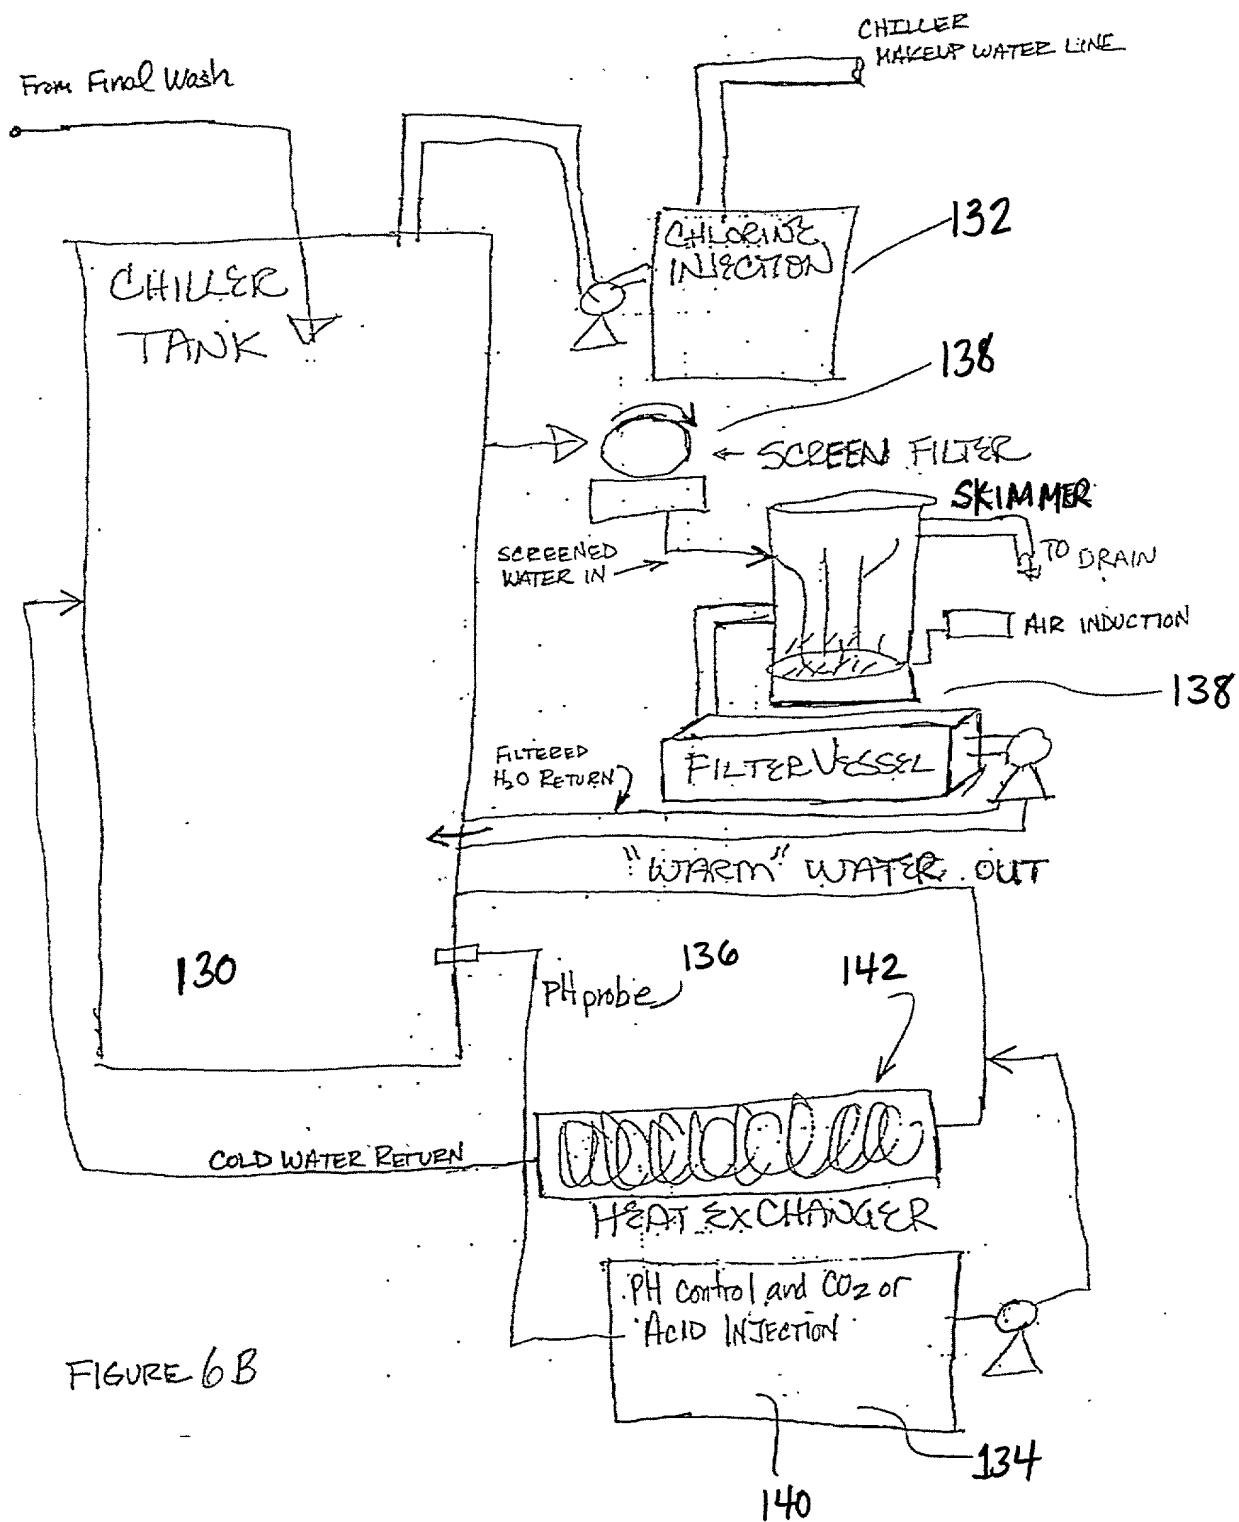 CHILLER
MAKEUP WATER LINE
From Final Wash
CHLORINE
INJECTION
132
CHILLER
TANK
138
SCREEN FILTER
SKIMMER
SCREENED
WATER IN
TO DRAIN
AIR INDUCTION
138
FILTERED
H₂O RETURN
FILTER VESSEL
"WARM" WATER OUT
130
136
142
PH probe
COLD WATER RETURN
HEAT EXCHANGER
PH control and CO₂ or
ACID INJECTION
FIGURE 6B
134
140